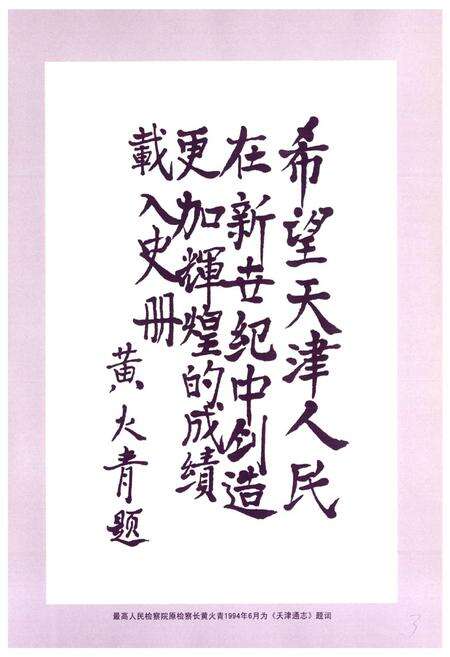 希望天津人民
在新世纪中创造
更加輝煌的成績
載入史册
黄火青题
最高人民检察院原检察长黄火青1994年6月为《天津通志》题词
3